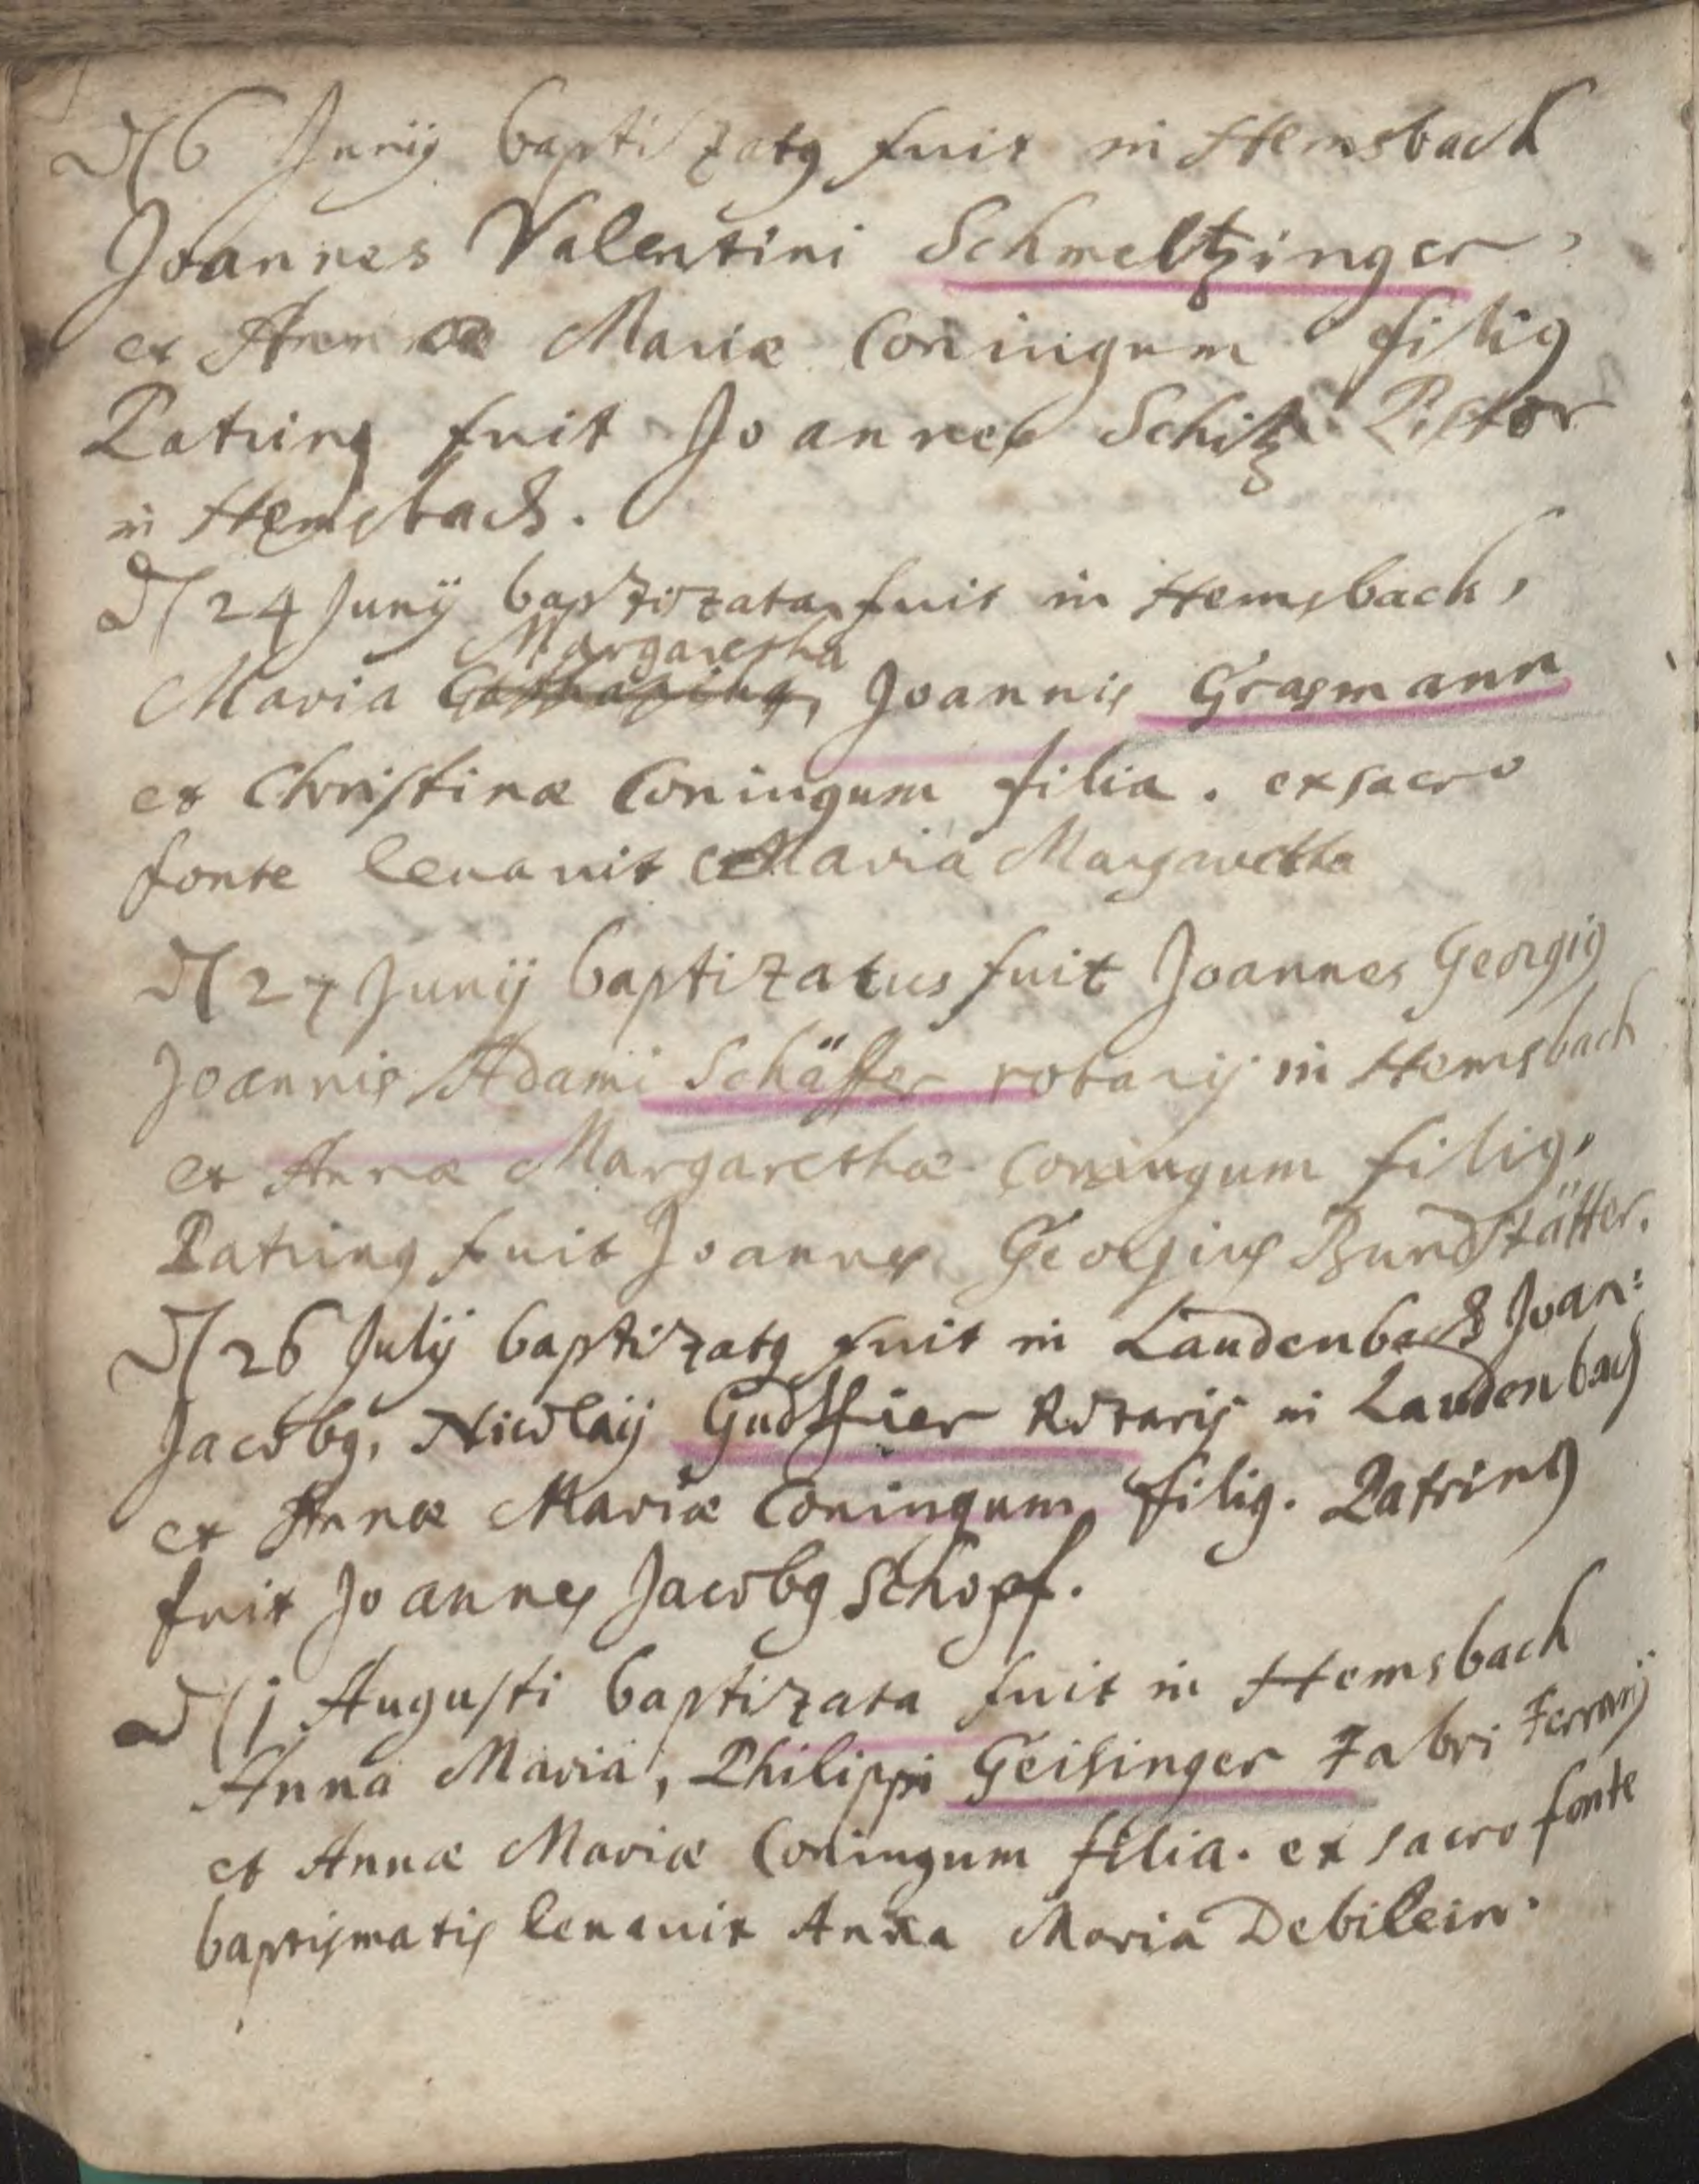 D 6 Junij baptizatꝰ fuit in Hemsbach
Joannes Valentini Schmeltzinger,
et Annæ Mariæ Coniugum filiꝰ
Patrinꝰ fuit Joannes Schitz Pistor
in Hemsbach.
D 24 Junij baptizata fuit in Hemsbach,
Margaretha
Maria Catharina, Joannis Grasmann
et Christinæ Coniugum filia. ex sacro
fonte leuauit Maria Margaretha
D 27 Junij baptizatus fuit Joannes Georgiꝰ
Joannis Adami Schäffer rotarij in Hemsbach
et Annæ Margarethæ coniugum filiꝰ.
Patrinꝰ fuit Joannes Georgius Bundstätter.
D 26 Julij baptizatꝰ fuit in Laudenbach Joan:
Jacobꝰ, Nicolaij Gudtfier Rotarij in Laudenbach
et Annæ Mariæ Coniugum filiꝰ. Patrinꝰ
fuit Joannes Jacobꝰ Schopf.
D 1 Augusti baptizata fuit in Hemsbach
Anna Maria, Philippi Geisinger Fabri Ferrarij
et Annæ Mariæ Coniugum filia. ex sacro fonte
baptismatis leuauit Anna Maria Debilein.